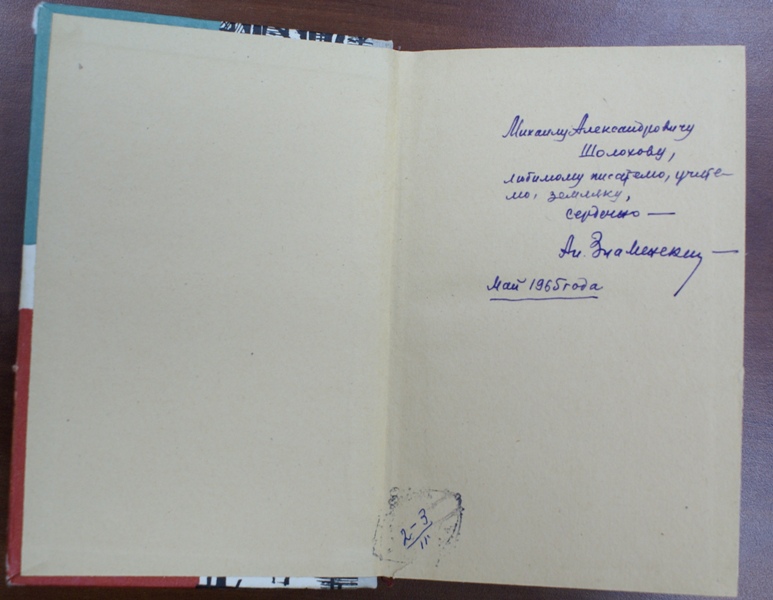 Михаилу Александровичу
Шолохову,
любимому писателю, учите-
лю, земляку,
сердечно —
Ан. Знаменский
Май 1965 года
2-3
III